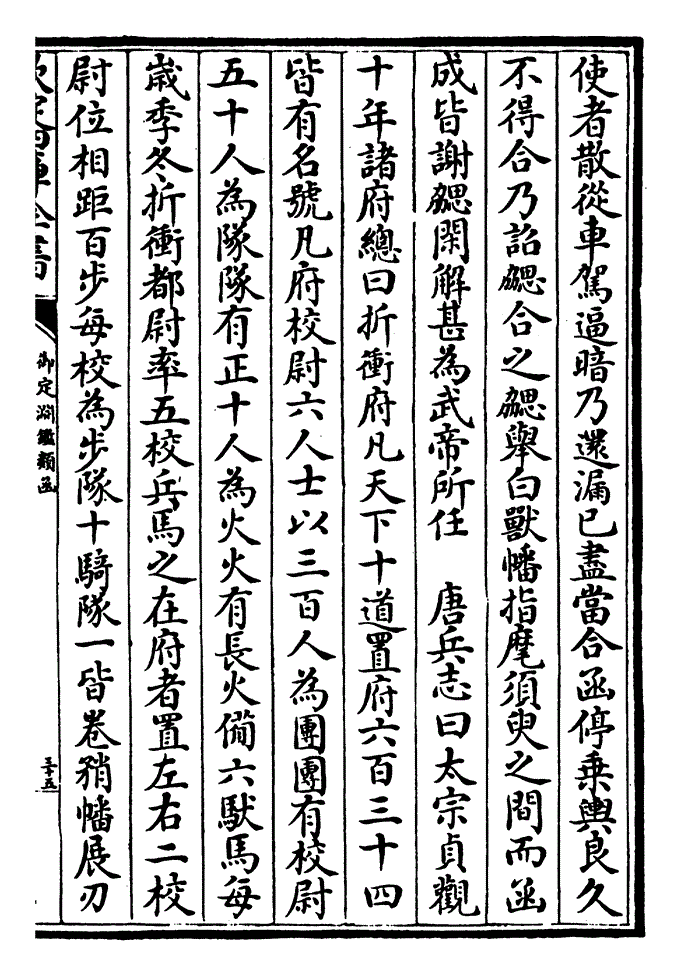 使者散從車駕逼暗乃還漏已盡當合函停乗輿良久
不得合乃詔勰合之勰舉白獸幡指麾須臾之間而函
成皆謝勰閑解甚為武帝所任　唐兵志曰太宗貞觀
十年諸府總曰折衝府凡天下十道置府六百三十四
皆有名號凡府校尉六人士以三百人為團團有校尉
五十人為隊隊有正十人為火火有長火備六馱馬每
嵗季冬折衝都尉率五校兵馬之在府者置左右二校
尉位相距百步每校為步隊十騎隊一皆卷矟幡展刃
欽定四庫全書
御定淵鑑類函
三十五